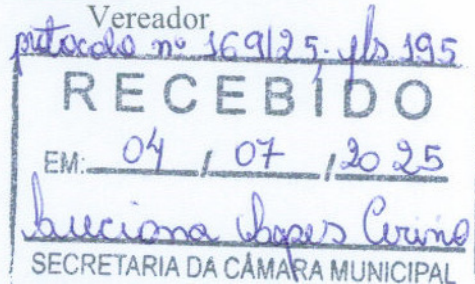 Vereador
protocolo nº 169/25. fls 195
RECEBIDO
EM: 04 / 07 / 2025
Luciana Lopes
SECRETARIA DA CÂMARA MUNICIPAL